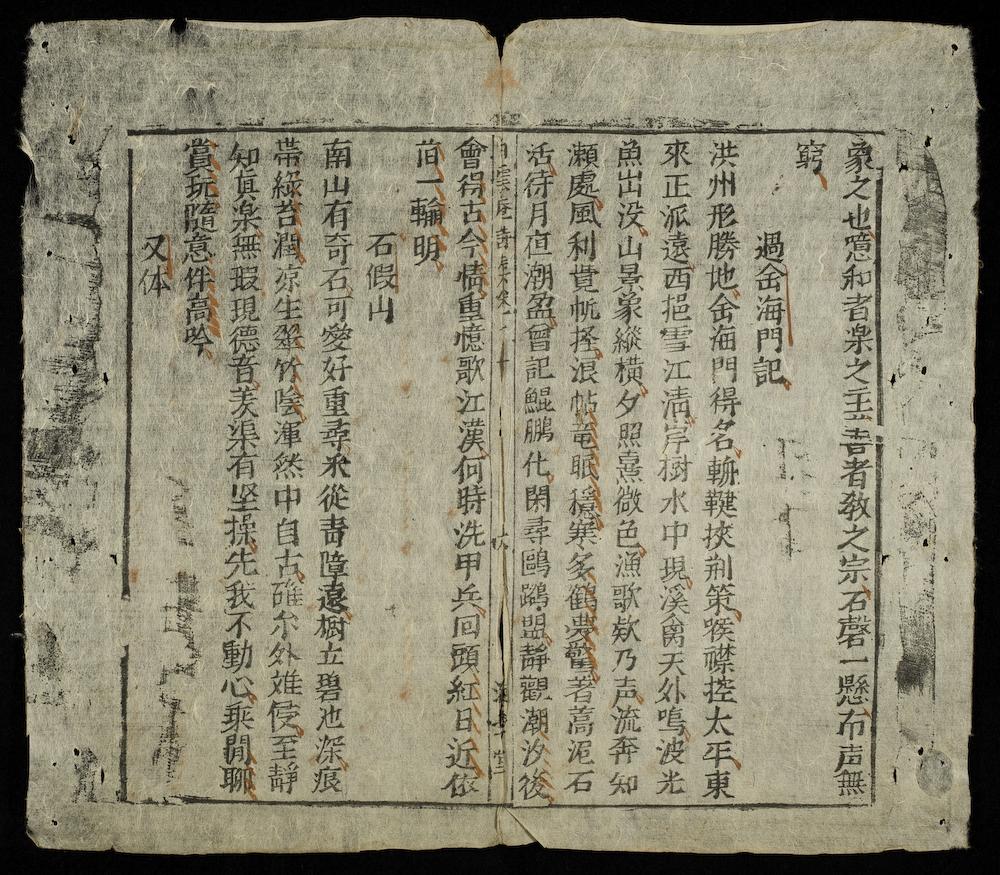 象之也噫和者楽之主䒭吉者教之宗石磬一懸而声無
窮
過缶海門記
洪州形勝地缶海門得名斬鞬挾荆策喉襟控太平東
來正派遠西挹雪江清岸樹水中現溪禽天外鳴波光
魚出没山景象縱橫夕照熹微色漁歌欸乃声流奔知
瀬處風利覺帆軽浪帖竜眠穏寒多鶴夢驚著蒿泥石
活待月夜潮盈曾記鯤鵬化閑尋鷗鷁盟靜觀潮汐後
會得古今情重憶歌江漢何時洗甲兵回頭紅日近依
前一輪明
石假山
南山有奇石可愛好重尋來從青障遠樹立碧池深痕
帶綠苔潤凉生翠竹陰渾然中自古確尓外难侵至靜
知真楽無瑕現德音羡渠有坚操先我不動心乘閒聊
賞玩隨意伴高吟
又体